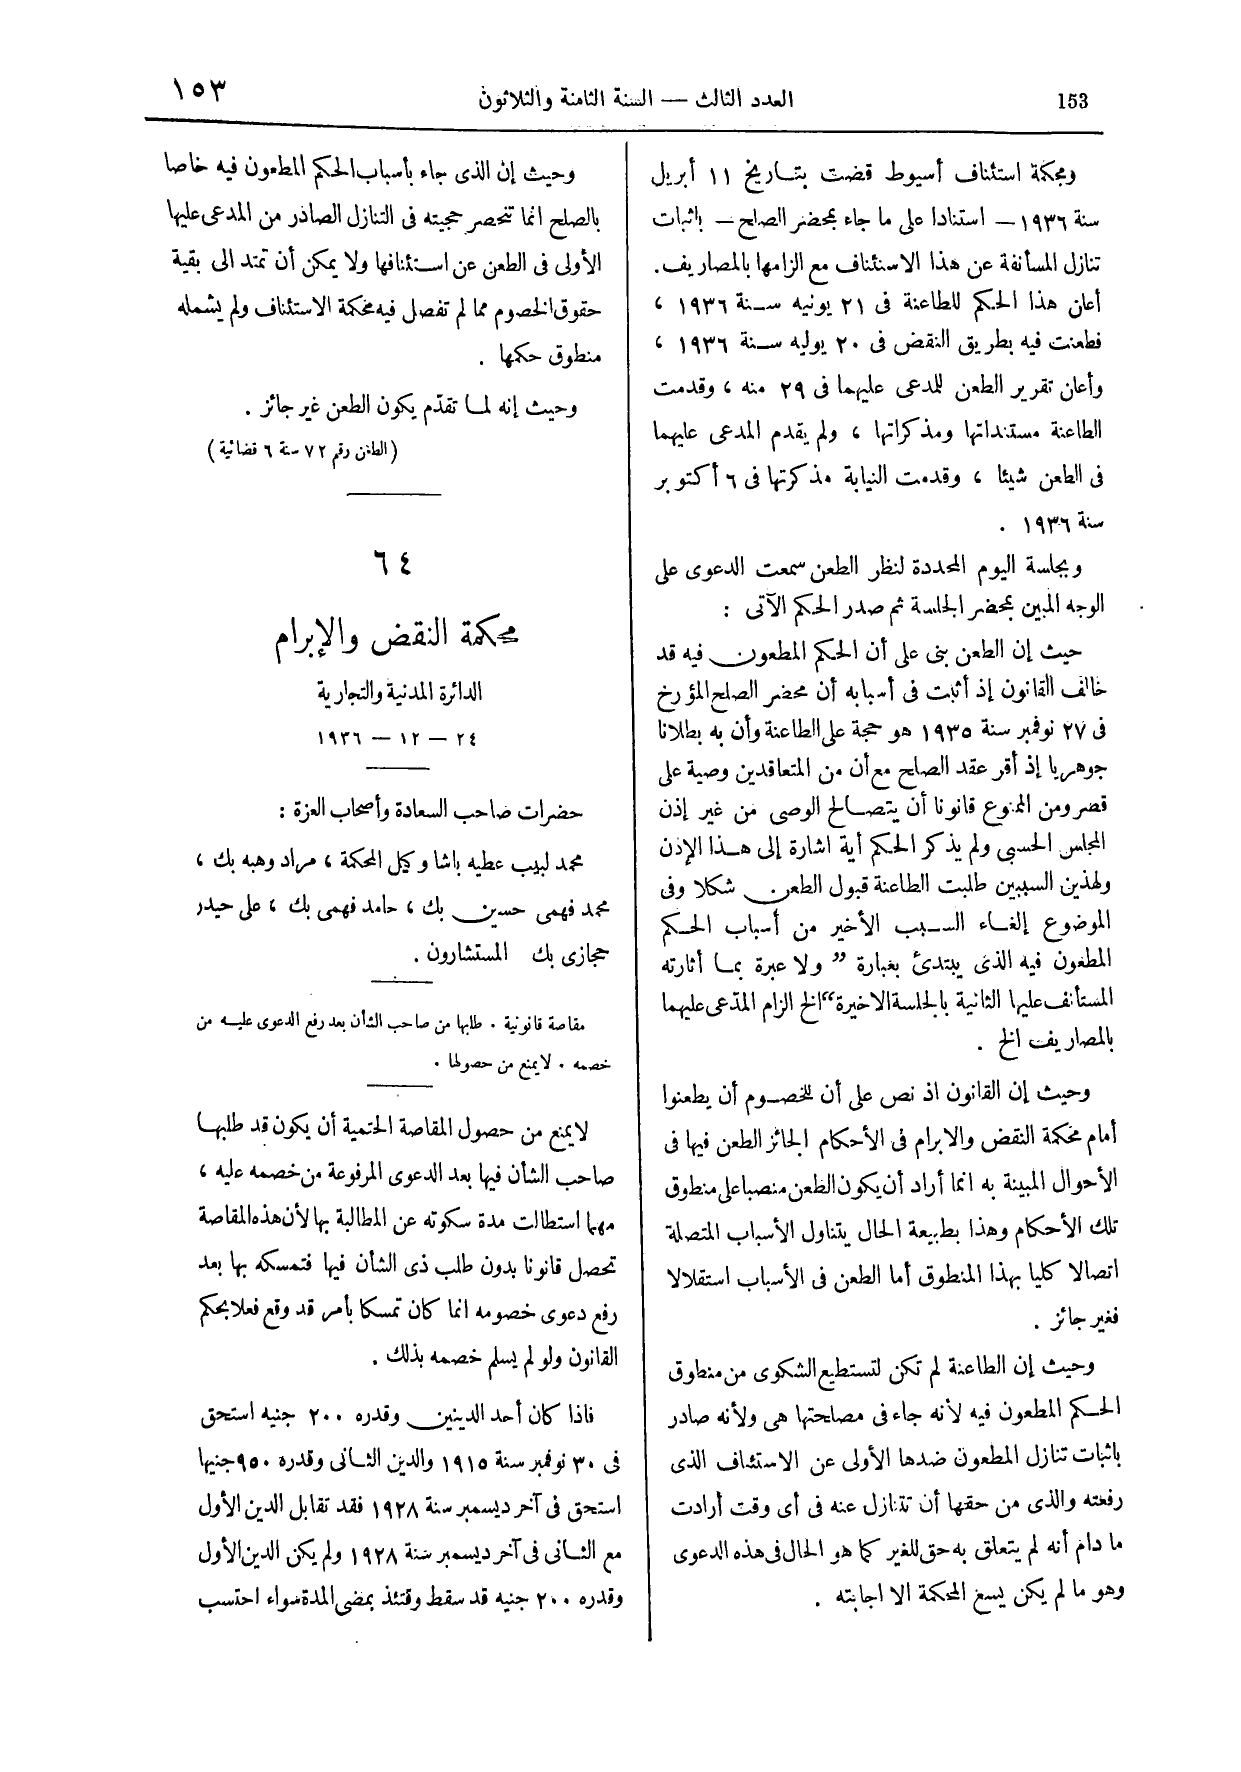 153
العدد الثالث — السنة الثامنة والثلاثون
١٥٣
ومحكمة استئناف أسيوط قضت بتاريخ ١١ أبريل
سنة ١٩٣٦ — استنادا على ما جاء بمحضر الصلح — باثبات
تنازل المستأنفة عن هذا الاستئناف مع الزامها بالمصاريف.
أعلن هذا الحكم للطاعنة فى ٢١ يونيه سنة ١٩٣٦ ،
فطعنت فيه بطريق النقض فى ٢٠ يوليه سنة ١٩٣٦ ،
وأعلن تقرير الطعن للمدعى عليهما فى ٢٩ منه ، وقدمت
الطاعنة مستنداتها ومذكراتها ، ولم يقدم المدعى عليهما
فى الطعن شيئا ، وقدمت النيابة مذكرتها فى ٦ أكتوبر
سنة ١٩٣٦ .
وبجلسة اليوم المحددة لنظر الطعن سمعت الدعوى على
الوجه المبين بمحضر الجلسة ثم صدر الحكم الآتى :
حيث إن الطعن بنى على أن الحكم المطعون فيه قد
خالف القانون إذ أثبت فى أسبابه أن محضر الصلح المؤرخ
فى ٢٧ نوفمبر سنة ١٩٣٥ هو حجة على الطاعنة وأن به بطلانا
جوهريا إذ أقر عقد الصلح مع أن من المتعاقدين وصية على
قصر ومن الممنوع قانونا أن يتصالح الوصى من غير إذن
المجلس الحسبى ولم يذكر الحكم أية اشارة إلى هذا الإذن
ولهذين السببين طلبت الطاعنة قبول الطعن شكلا وفى
الموضوع إلغاء السبب الأخير من أسباب الحكم
المطعون فيه الذى يبتدئ بعبارة ” ولا عبرة بما أثارته
المستأنف عليها الثانية بالجلسة الاخيرة“ الخ الزام المدعى عليهما
بالمصاريف الخ .
وحيث إن القانون اذ نص على أن للخصوم أن يطعنوا
أمام محكمة النقض والابرام فى الأحكام الجائز الطعن فيها فى
الأحوال المبينة به انما أراد أن يكون الطعن منصبا على منطوق
تلك الأحكام وهذا بطبيعة الحال يتناول الأسباب المتصلة
اتصالا كليا بهذا المنطوق أما الطعن فى الأسباب استقلالا
فغير جائز .
وحيث إن الطاعنة لم تكن لتستطيع الشكوى من منطوق
الحكم المطعون فيه لأنه جاء فى مصلحتها هى ولأنه صادر
باثبات تنازل المطعون ضدها الأولى عن الاستئناف الذى
رفعته والذى من حقها أن تتنازل عنه فى أى وقت أرادت
ما دام أنه لم يتعلق به حق للغير كما هو الحال فى هذه الدعوى
وهو ما لم يكن يسع المحكمة الا اجابته .
وحيث إن الذى جاء بأسباب الحكم المطعون فيه خاصا
بالصلح انما تنحصر حجيته فى التنازل الصادر من المدعى عليها
الأولى فى الطعن عن استئنافها ولا يمكن أن تمتد الى بقية
حقوق الخصوم مما لم تفصل فيه محكمة الاستئناف ولم يشمله
منطوق حكمها .
وحيث إنه لما تقدّم يكون الطعن غير جائز .
(الطعن رقم ٧٢ سنة ٦ قضائية)
٦٤
محكمة النقض والإبرام
الدائرة المدنية والتجارية
٢٤ — ١٢ — ١٩٣٦
حضرات صاحب السعادة وأصحاب العزة :
محمد لبيب عطيه باشا وكيل المحكمة ، مراد وهبه بك ،
محمد فهمى حسين بك ، حامد فهمى بك ، على حيدر
حجازى بك المستشارون .
مقاصة قانونية . طلبها من صاحب الشأن بعد رفع الدعوى عليه من
خصمه . لا يمنع من حصولها .
لا يمنع من حصول المقاصة الحتمية أن يكون قد طلبها
صاحب الشأن فيها بعد الدعوى المرفوعة من خصمه عليه ،
مهما استطالت مدة سكوته عن المطالبة بها لأن هذه المقاصة
تحصل قانونا بدون طلب ذى الشأن فيها فتمسكه بها بعد
رفع دعوى خصومه انما كان تمسكا بأمر قد وقع فعلا بحكم
القانون ولو لم يسلم خصمه بذلك .
فاذا كان أحد الدينين وقدره ٢٠٠ جنيه استحق
فى ٣٠ نوفمبر سنة ١٩١٥ والدين الثانى وقدره ٩٥٠ جنيها
استحق فى آخر ديسمبر سنة ١٩٢٨ فقد تقابل الدين الأول
مع الثانى فى آخر ديسمبر سنة ١٩٢٨ ولم يكن الدين الأول
وقدره ٢٠٠ جنيه قد سقط وقتئذ بمضى المدة سواء احتسب